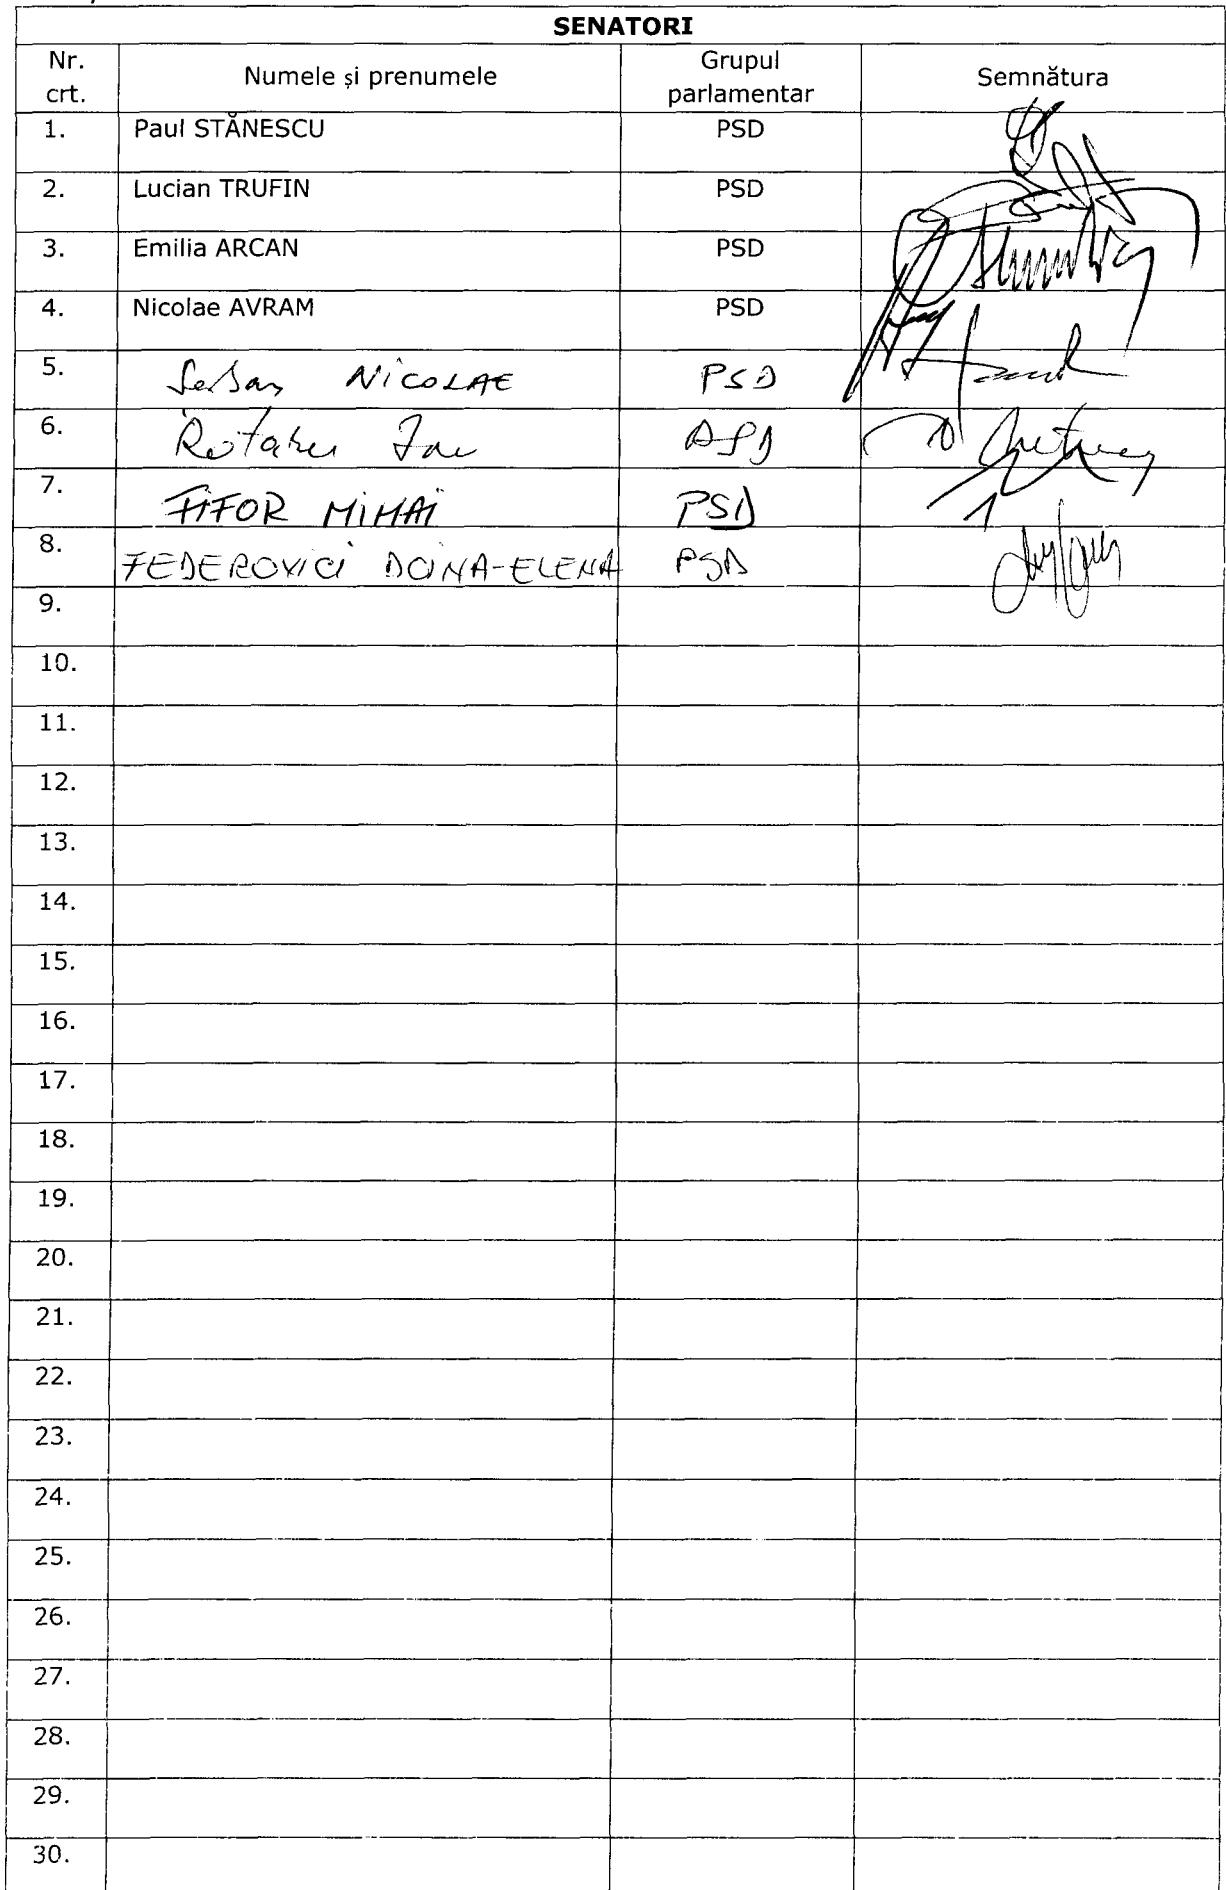 SENATORI
Nr. crt. Numele și prenumele Grupul parlamentar Semnătura
1. Paul STĂNESCU PSD
2. Lucian TRUFIN PSD
3. Emilia ARCAN PSD
4. Nicolae AVRAM PSD
5. Serban NICOLAE PSD
6. Rotaru Ion
7. FIFOR MIHAI PSD
8. FEDEROVICI DOINA-ELENA PSD
9.
10.
11.
12.
13.
14.
15.
16.
17.
18.
19.
20.
21.
22.
23.
24.
25.
26.
27.
28.
29.
30.